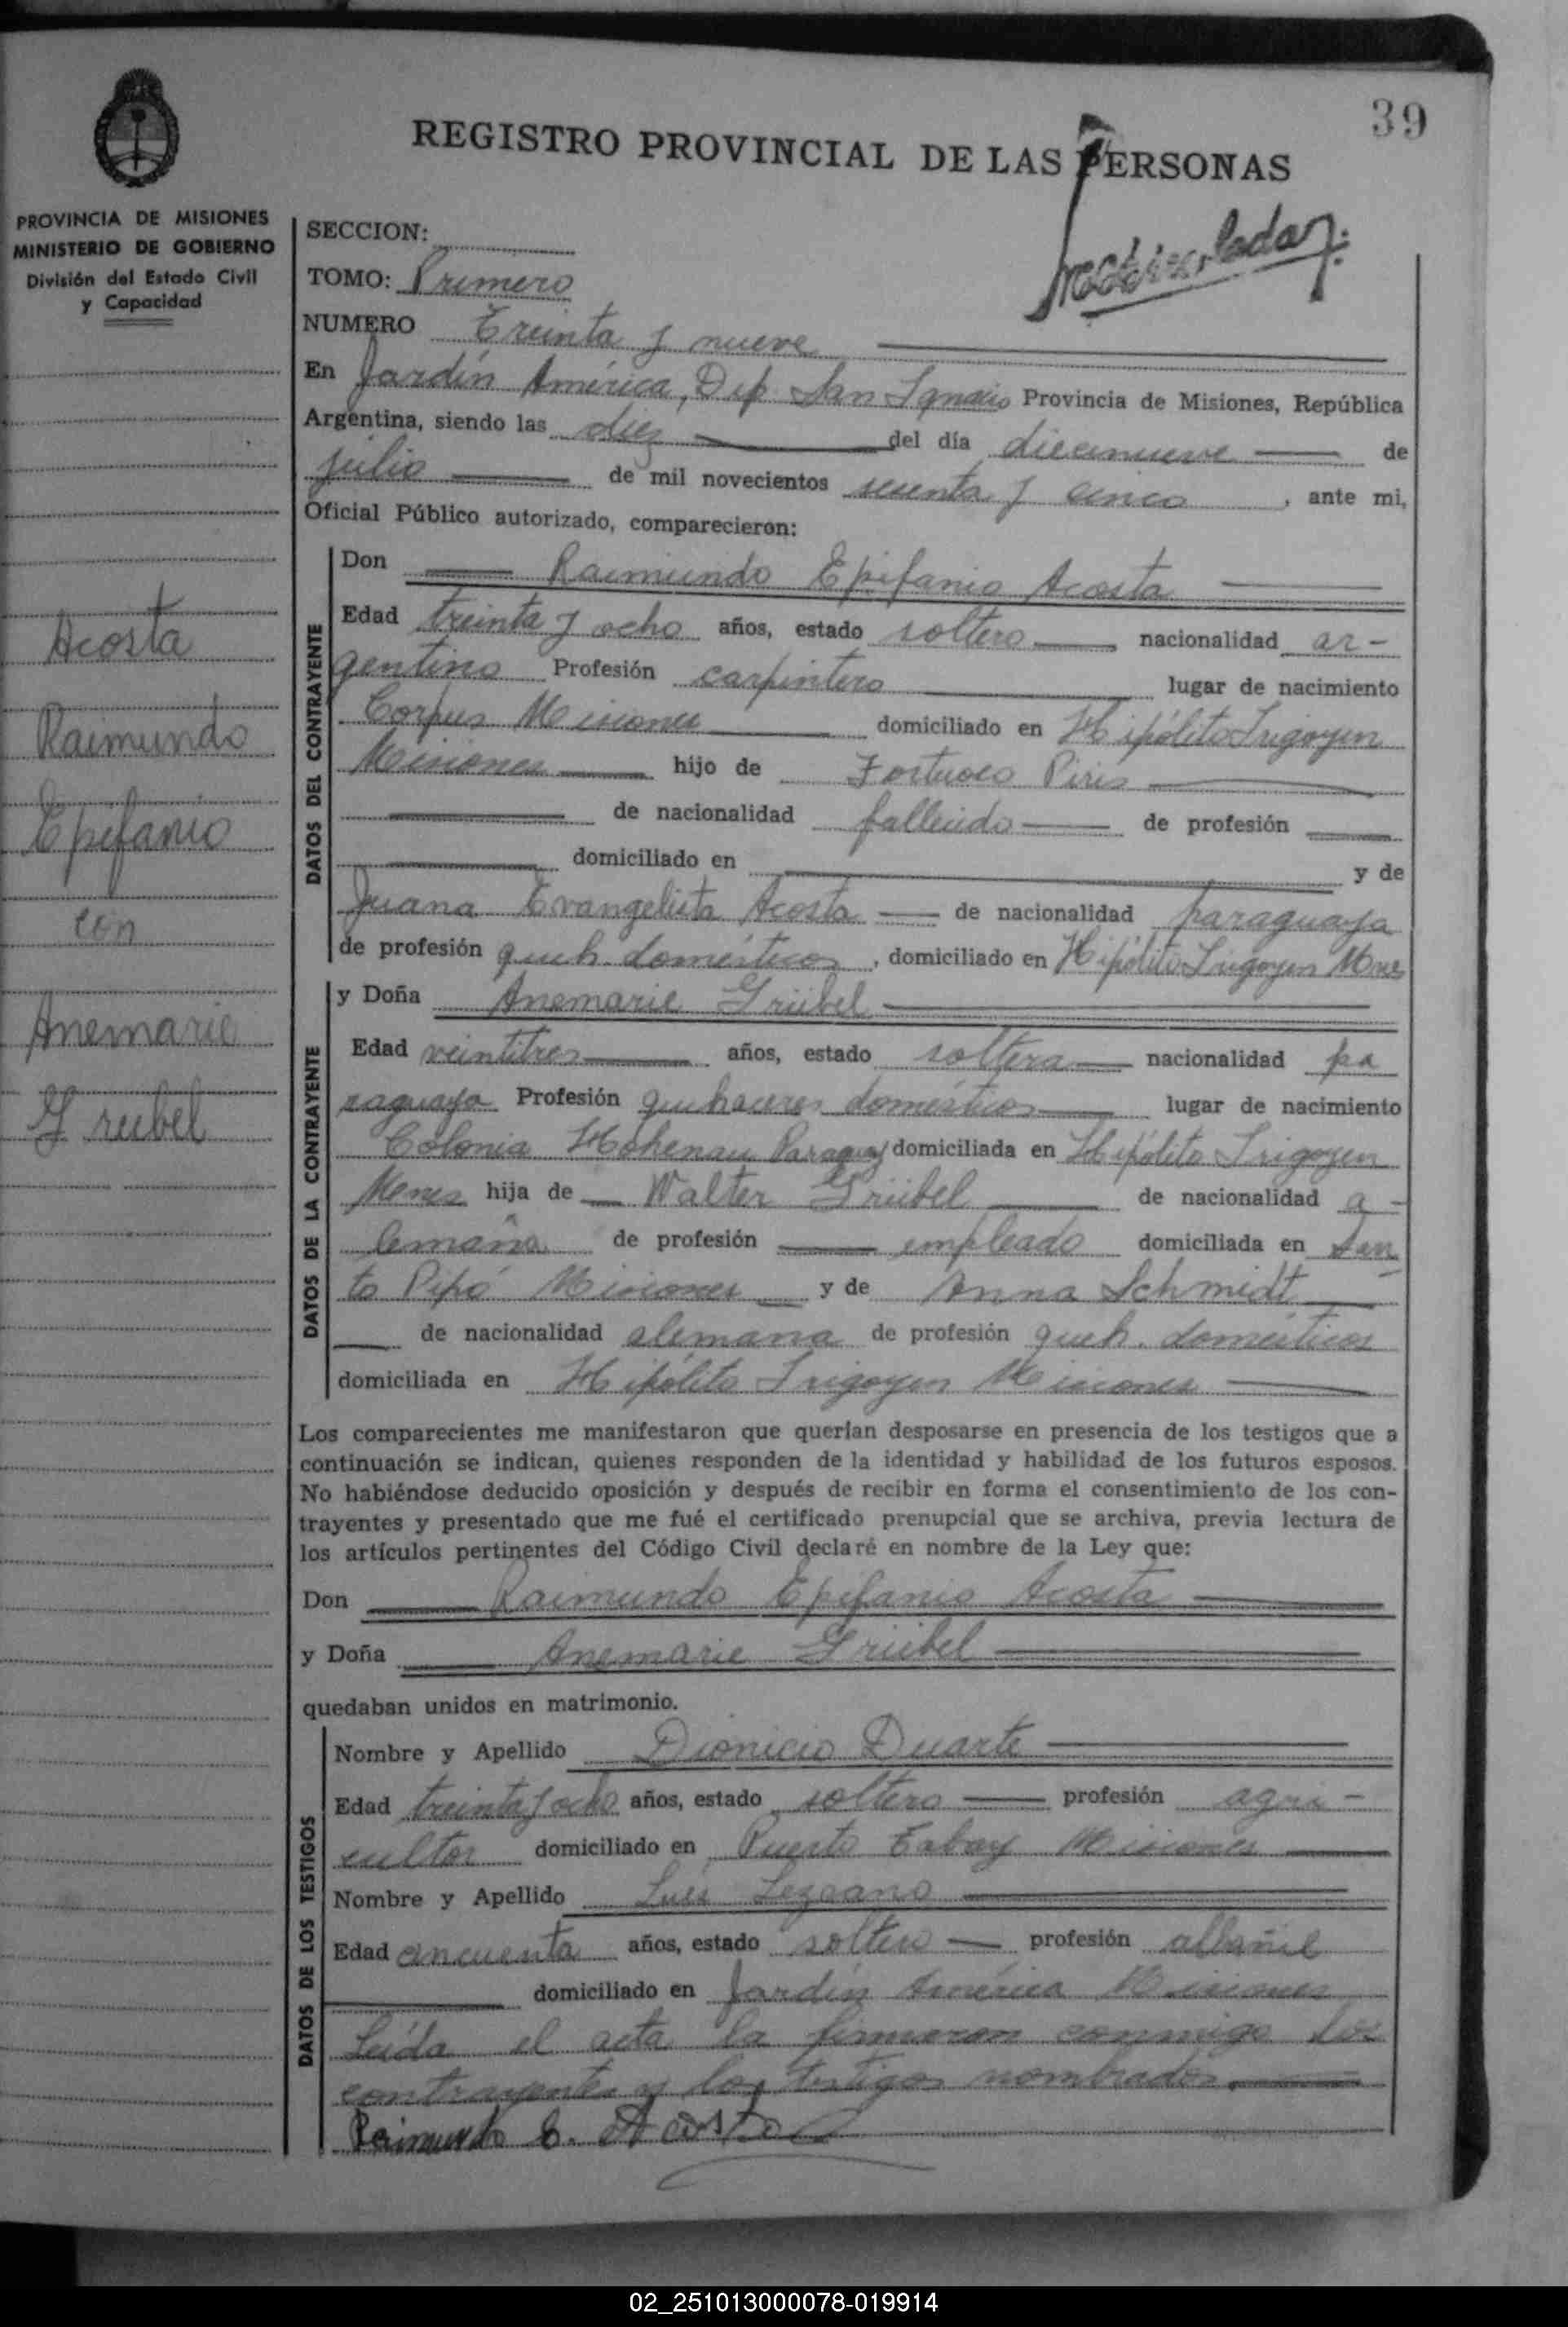 39
REGISTRO PROVINCIAL DE LAS PERSONAS
PROVINCIA DE MISIONES
MINISTERIO DE GOBIERNO
División del Estado Civil
y Capacidad
SECCION:
TOMO: Primero
NUMERO Treinta y nueve
En Jardín América, Dep. San Ignacio Provincia de Misiones, República
Argentina, siendo las diez del día diecinueve de
julio de mil novecientos sesenta y cinco, ante mi,
Oficial Público autorizado, comparecieron:
DATOS DEL CONTRAYENTE
Don Raimundo Epifanio Acosta
Edad treinta y ocho años, estado soltero nacionalidad ar-
gentino Profesión carpintero lugar de nacimiento
Corpus Misiones domiciliado en Hipólito Irigoyen
Misiones hijo de Piris
de nacionalidad fallecido de profesión
domiciliado en y de
Juana Evangelista Acosta de nacionalidad paraguaya
de profesión queh. domésticos, domiciliado en Hipólito Irigoyen Mnes
DATOS DE LA CONTRAYENTE
y Doña Anemarie Grübel
Edad veintitres años, estado soltera nacionalidad pa
raguaya Profesión quehaceres domésticos lugar de nacimiento
Colonia Hohenau Paraguay domiciliada en Hipólito Irigoyen
Mnes hija de Walter Grübel de nacionalidad a-
lemana de profesión empleado domiciliada en San
to Pipó Misiones y de Anna Schmidt
de nacionalidad alemana de profesión queh. domésticos
domiciliada en Hipólito Irigoyen Misiones
Los comparecientes me manifestaron que querían desposarse en presencia de los testigos que a
continuación se indican, quienes responden de la identidad y habilidad de los futuros esposos.
No habiéndose deducido oposición y después de recibir en forma el consentimiento de los con-
trayentes y presentado que me fué el certificado prenupcial que se archiva, previa lectura de
los artículos pertinentes del Código Civil declaré en nombre de la Ley que:
Don Raimundo Epifanio Acosta
y Doña Anemarie Grübel
quedaban unidos en matrimonio.
DATOS DE LOS TESTIGOS
Nombre y Apellido Dionicio Duarte
Edad treinta y ocho años, estado soltero profesión agri-
cultor domiciliado en Puerto Tabay Misiones
Nombre y Apellido Luis Lezcano
Edad cincuenta años, estado soltero profesión albañil
domiciliado en Jardín América Misiones
Leída el acta la firmaron conmigo los
contrayentes y los testigos nombrados.
Raimundo E. Acosta
Acosta
Raimundo
Epifanio
con
Anemarie
Grubel
02_251013000078-019914